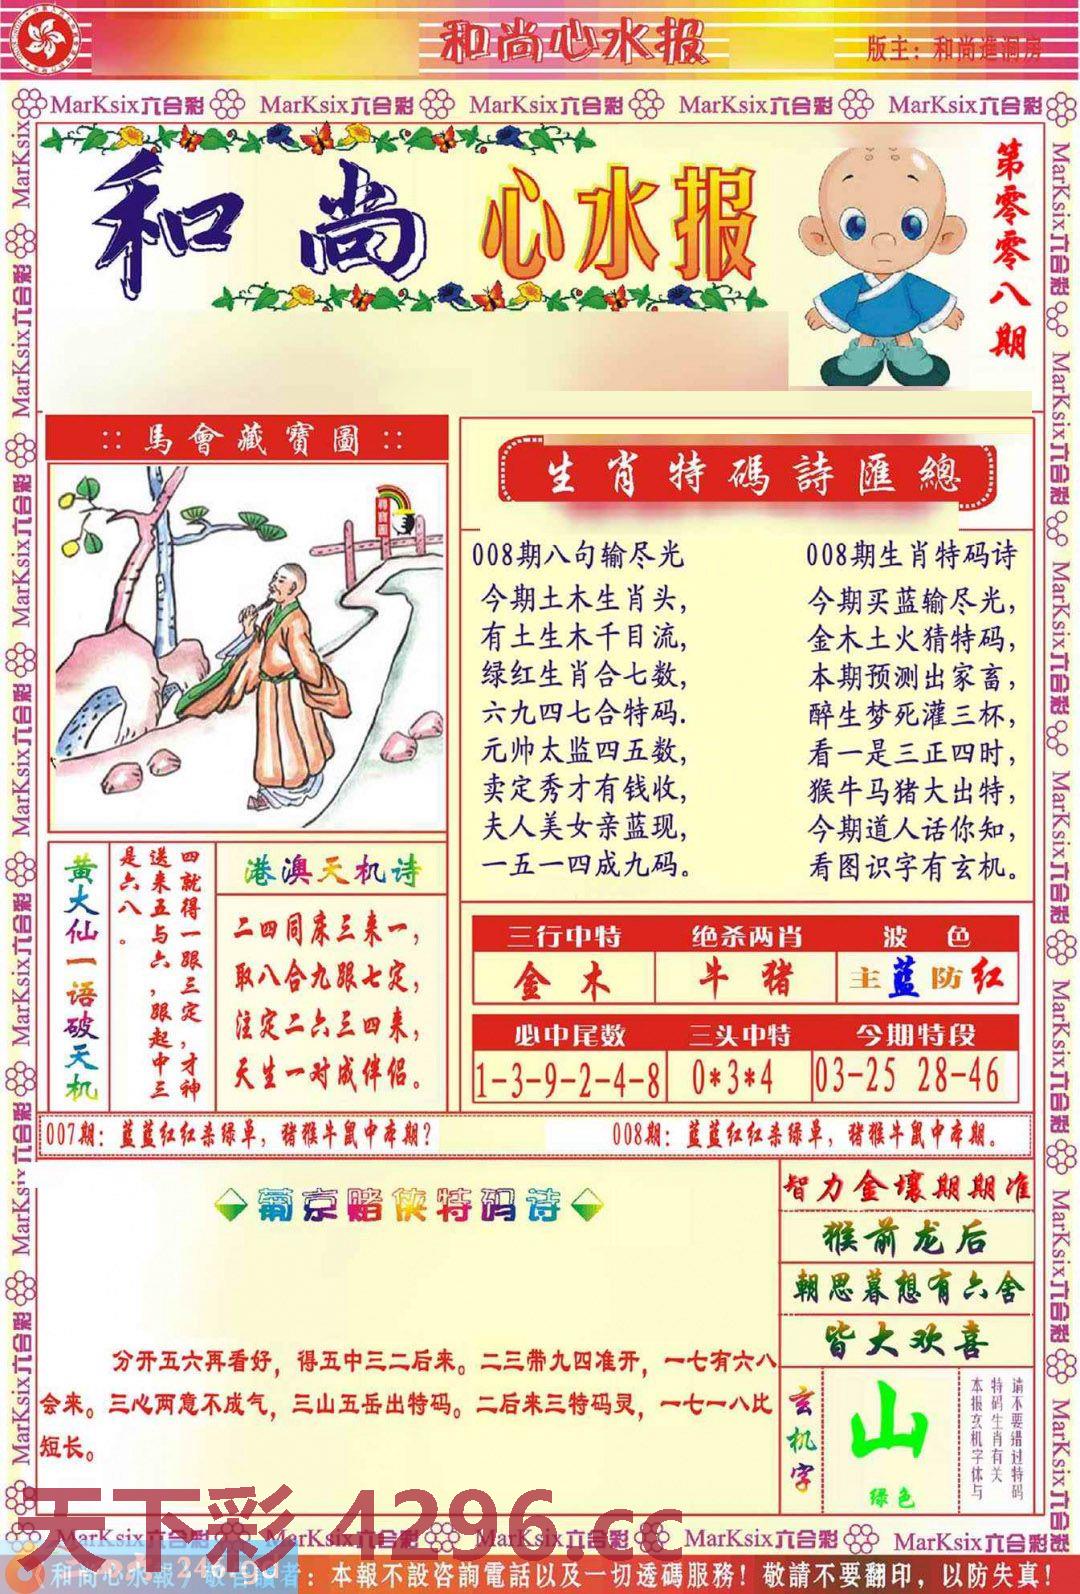 和尚心水报
版主：和尚進洞房
MarKsix六合彩 MarKsix六合彩 MarKsix六合彩 MarKsix六合彩 MarKsix六合彩
和尚 心水报
第零零八期
馬會藏寶圖
生肖特碼詩匯總
008期八句输尽光
今期土木生肖头，
有土生木千目流，
绿红生肖合七数，
六九四七合特码.
元帅太监四五数，
卖定秀才有钱收，
夫人美女亲蓝现，
一五一四成九码。
008期生肖特码诗
今期买蓝输尽光，
金木土火猜特码，
本期预测出家畜，
醉生梦死灌三杯，
看一是三正四时，
猴牛马猪大出特，
今期道人话你知，
看图识字有玄机。
黄大仙一语破天机
四就得一跟三定，才神
送来五与六，跟起中三
是六八。
港澳天机诗
二四同床三来一，
取八合九跟七定，
注定二六三四来，
天生一对成伴侣。
三行中特 绝杀两肖 波色
金木 牛猪 主蓝防红
必中尾数 三头中特 今期特段
1-3-9-2-4-8 0*3*4 03-25 28-46
007期：蓝蓝红红杀绿单，猪猴牛鼠中本期？
008期：蓝蓝红红杀绿单，猪猴牛鼠中本期。
葡京赌侠特码诗
分开五六再看好，得五中三二后来。二三带九四准开，一七有六八
会来。三心两意不成气，三山五岳出特码。二后来三特码灵，一七一八比
短长。
智力金壤期期准
猴前龙后
朝思暮想有六舍
皆大欢喜
玄机字
山
绿色
请不要错过特码
特码生肖有关
本报玄机字体与
天下彩 4296.cc
MarKsix六合彩 MarKsix六合彩 MarKsix六合彩 MarKsix六合彩 MarKsix六合彩
和尚心水報，敬告讀者：本報不設咨詢電話以及一切透碼服務！敬請不要翻印，以防失真！
246.gd